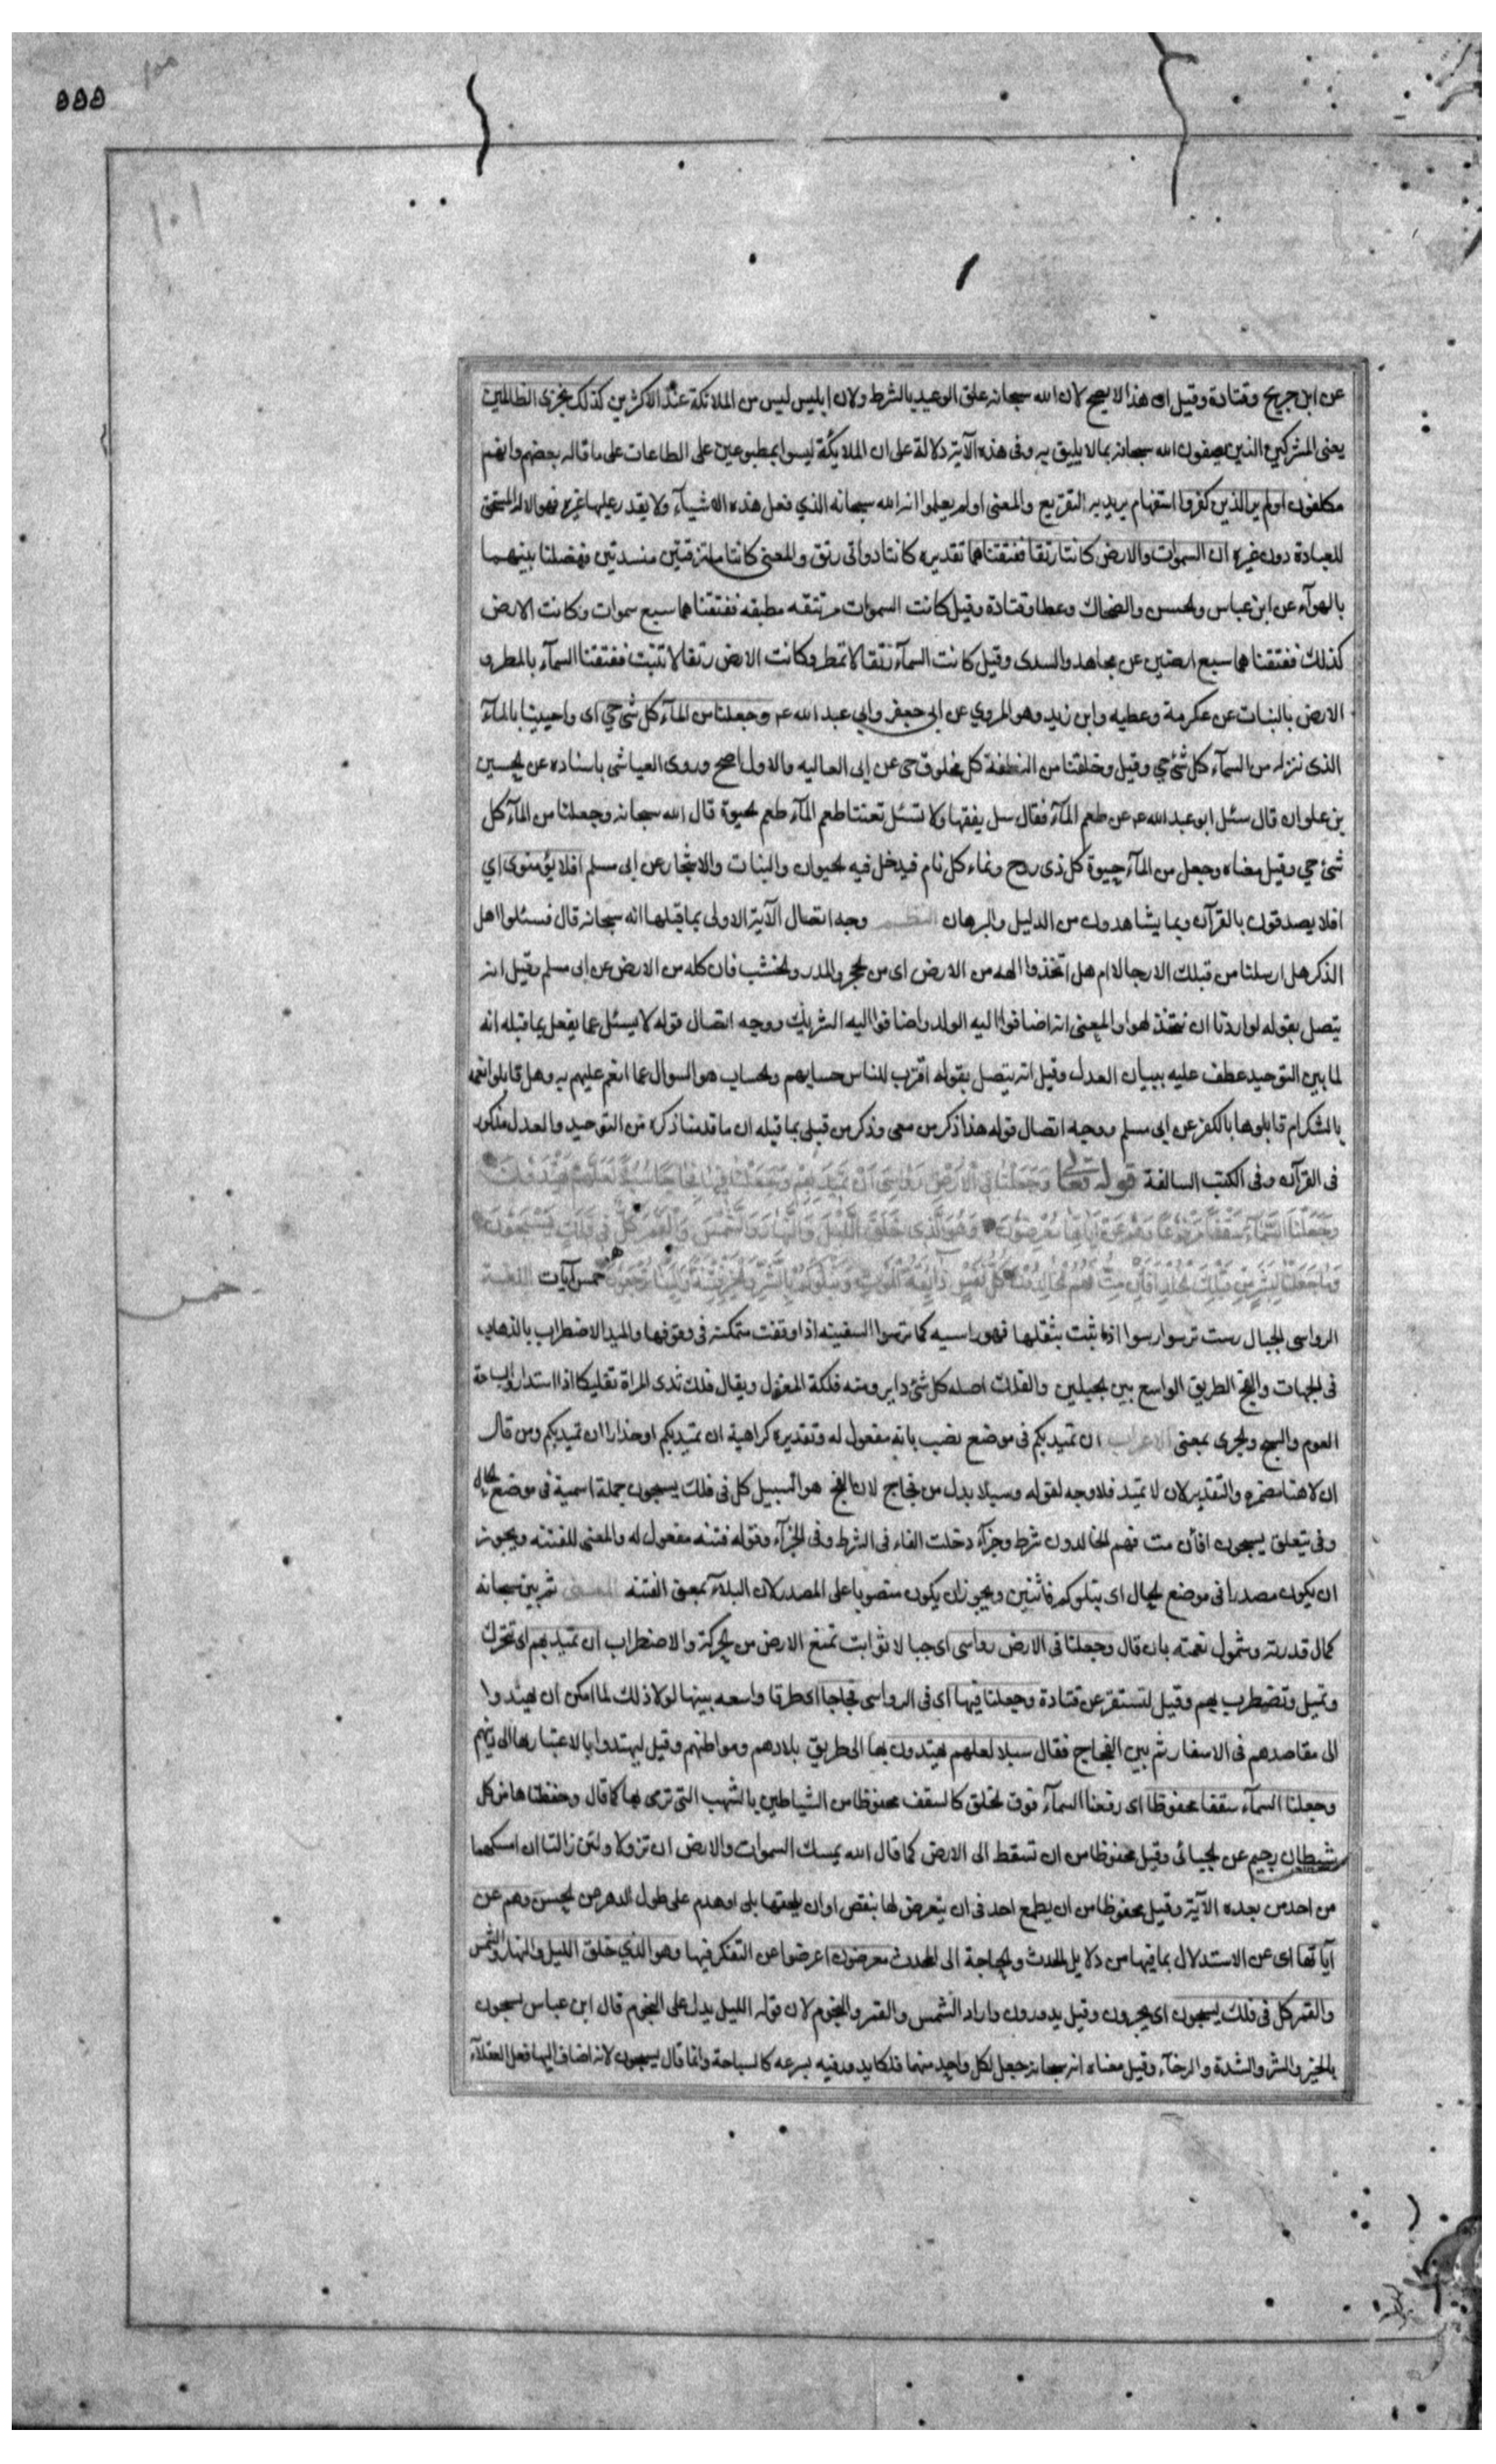 ٥٥٥
عن ابن جريج وقتادة وقيل ان هذا لا يصح لان الله سبحانه علق الوعيد بالشرط ولان ابليس ليس من الملائكة عند الاكثرين كذلك نجزى الظالمين
يعنى المشركين الذين يصفون الله سبحانه بما لا يليق به وفى هذه الآية دلالة على ان الملايكة ليسوا بمطبوعين على الطاعات على ما قاله بعضهم وانهم
مكلفون اولم ير الذين كفروا استفهام يريد به التقريع والمعنى اولم يعلموا انه الله سبحانه الذي فعل هذه الاشياء ولا يقدر عليها غيره فهو الاله المستحق
للعبادة دون غيره ان السموات والارض كانتا رتقا ففتقناهما تقديره كانتا ذواتى رتق والمعنى كانتا ملتزقتين منسدتين ففصلنا بينهما
بالهوآء عن ابن عباس ولحسن والضحاك وعطا وقتادة وقيل كانت السموات مرتتقه مطبقه ففتقناهما سبع سموات وكانت الارض
كذلك ففتقناهما سبع ارضين عن مجاهد والسدى وقيل كانت السمآء رتقا لا تمطر وكانت الارض رتقا لا تنبت ففتقنا السمآء بالمطر و
الارض بالنبات عن عكرمة وعطيه وابن زيد وهو المروي عن ابي جعفر وابي عبد الله عم وجعلنا من المآء كل شئ حي اى واحيينا بالمآء
الذى ننزله من السمآء كل شئ حي وقيل وخلقنا من النطفة كل مخلوق حى عن ابى العاليه والاول اصح وروى العياشى باسناده عن لحسين
بن علوان قال سئل ابو عبد الله عم عن طعم المآء فقال سل يفقها ولا تسئل تعنتا طعم المآء طعم لحيوة قال الله سبحانه وجعلنا من المآء كل
شئ حي وقيل معناه وجعل من المآء حيوة كل ذى روح ونماء كل نام فيدخل فيه لحيوان والنبات والاشجار عن ابى مسلم افلا يؤمنون اي
افلا يصدقون بالقرآن وبما يشاهدون من الدليل والبرهان النظم وجه اتصال الآية الاولى بما قبلها انه سبحانه قال فسئلوا اهل
الذكر هل ارسلنا من قبلك الا رجالا ام هل اتخذوا الهه من الارض اى من لحجر والمدر ولخشب فان كله من الارض عن ابى مسلم وقيل انه
يتصل بقوله لو اردنا ان نتخذ لهوا والمعنى انه اضافوا اليه الولد واضافوا اليه الشريك ووجه اتصال قوله لا يسئل عما يفعل بما قبله انه
لما بين التوحيد عطف عليه ببيان العدل وقيل انه يتصل بقوله اقترب للناس حسابهم ولحساب هو السوال عما انعم عليهم به وهل قابلوا نعمه
بالشكر ام قابلوها بالكفر عن ابى مسلم ووجه اتصال قوله هذا ذكر من معى وذكر من قبلى بما قبله ان ما قدمنا ذكره من التوحيد والعدل مذكور
فى القرآن وفى الكتب السالفة قوله تعالى وجعلنا فى الارض رواسى ان تميد بهم وجعلنا فيها فجاجا سبلا لعلهم يهتدون
وجعلنا السمآء سقفا محفوظا وهم عن آياتها معرضون وهو الذى خلق الليل والنهار والشمس والقمر كل فى فلك يسبحون
وما جعلنا لبشر من قبلك الخلد افان مت فهم الخالدون كل نفس ذآئقة الموت ونبلوكم بالشر والخير فتنة والينا ترجعون خمس آيات اللغة
خمس
الرواسى لجبال رست ترسوا رسوا اذا ثبتت بثقلها فهو راسيه كما ترسوا السفينه اذا وقفت متمكنه فى وقوفها والميد الاضطراب بالذهاب
فى لجهات والفج الطريق الواسع بين لجبلين والفلك اصله كل شئ داير ومنه فلكة المغزل ويقال فلك ثدى المراة تفليكا اذا استدار والسباحة
العوم والسبح ولجرى بمعنى الاعراب ان تميد بكم فى موضع نصب بانه مفعول له وتقديره كراهية ان تميد بكم او حذارا ان تميد بكم ومن قال
ان لا هنا مضمره والتقدير لان لا تميد فلا وجه لقوله وسبلا بدل من فجاج لان الفج هو السبيل كل فى فلك يسبحون جملة اسمية فى موضع لحال
وفى يتعلق يسبحون افان مت فهم لخالدون شرط وجزآء دخلت الفاء فى الشرط وفى الجزآء وقوله فتنه مفعول له والمعنى للفتنه ويجوز
ان يكون مصدرا فى موضع لحال اى نبلوكم فاتنين ويجوز ان يكون منصوبا على المصدر لان البلآء بمعنى الفتنه المعنى ثم بين سبحانه
كمال قدرته وشمول نعمته بان قال وجعلنا فى الارض رواسى اى جبالا ثوابت تمنع الارض من لحركة والاضطراب ان تميد بهم اى تتحرك
وتميل وتضطرب بهم وقيل لتستقر عن قتادة وجعلنا فيها اى فى الرواسى فجاجا اى طرقا واسعه بينها لولا ذلك لما امكن ان يهتدوا
الى مقاصدهم فى الاسفار ثم بين الفجاج فقال سبلا لعلهم يهتدون بها الى طريق بلادهم ومواطنهم وقيل ليهتدوا بالاعتبار بها الى دينهم
وجعلنا السمآء سقفا محفوظا اى رفعنا السمآء فوق لخلق كالسقف محفوظا من الشياطين بالشهب التى ترمى بها كما قال وحفظناها من كل
شيطان رجيم عن لجبائى وقيل محفوظا من ان تسقط الى الارض كما قال الله يمسك السموات والارض ان تزولا ولئن زالتا ان امسكهما
من احد من بعده الآية وقيل محفوظا من ان يطمع احد فى ان يتعرض لها بنقص او ان يلحقها بلى او هدم على طول الدهر عن لحسن وهم عن
آياتها اى عن الاستدلال بما فيها من دلايل لحدث ولحاجة الى المحدث معرضون اعرضوا عن التفكر فيها وهو الذي خلق الليل والنهار والشمس
والقمر كل فى فلك يسبحون اى يجرون وقيل يدورون واراد الشمس والقمر والنجوم لان قوله الليل يدل على النجوم قال ابن عباس يسبحون
بالخير والشر والشدة والرخآء وقيل معناه انه سبحانه جعل لكل واحد منهما فلكا يدور فيه بسرعه كالسباحة وانما قال يسبحون لانه اضاف اليها فعل العقلآء